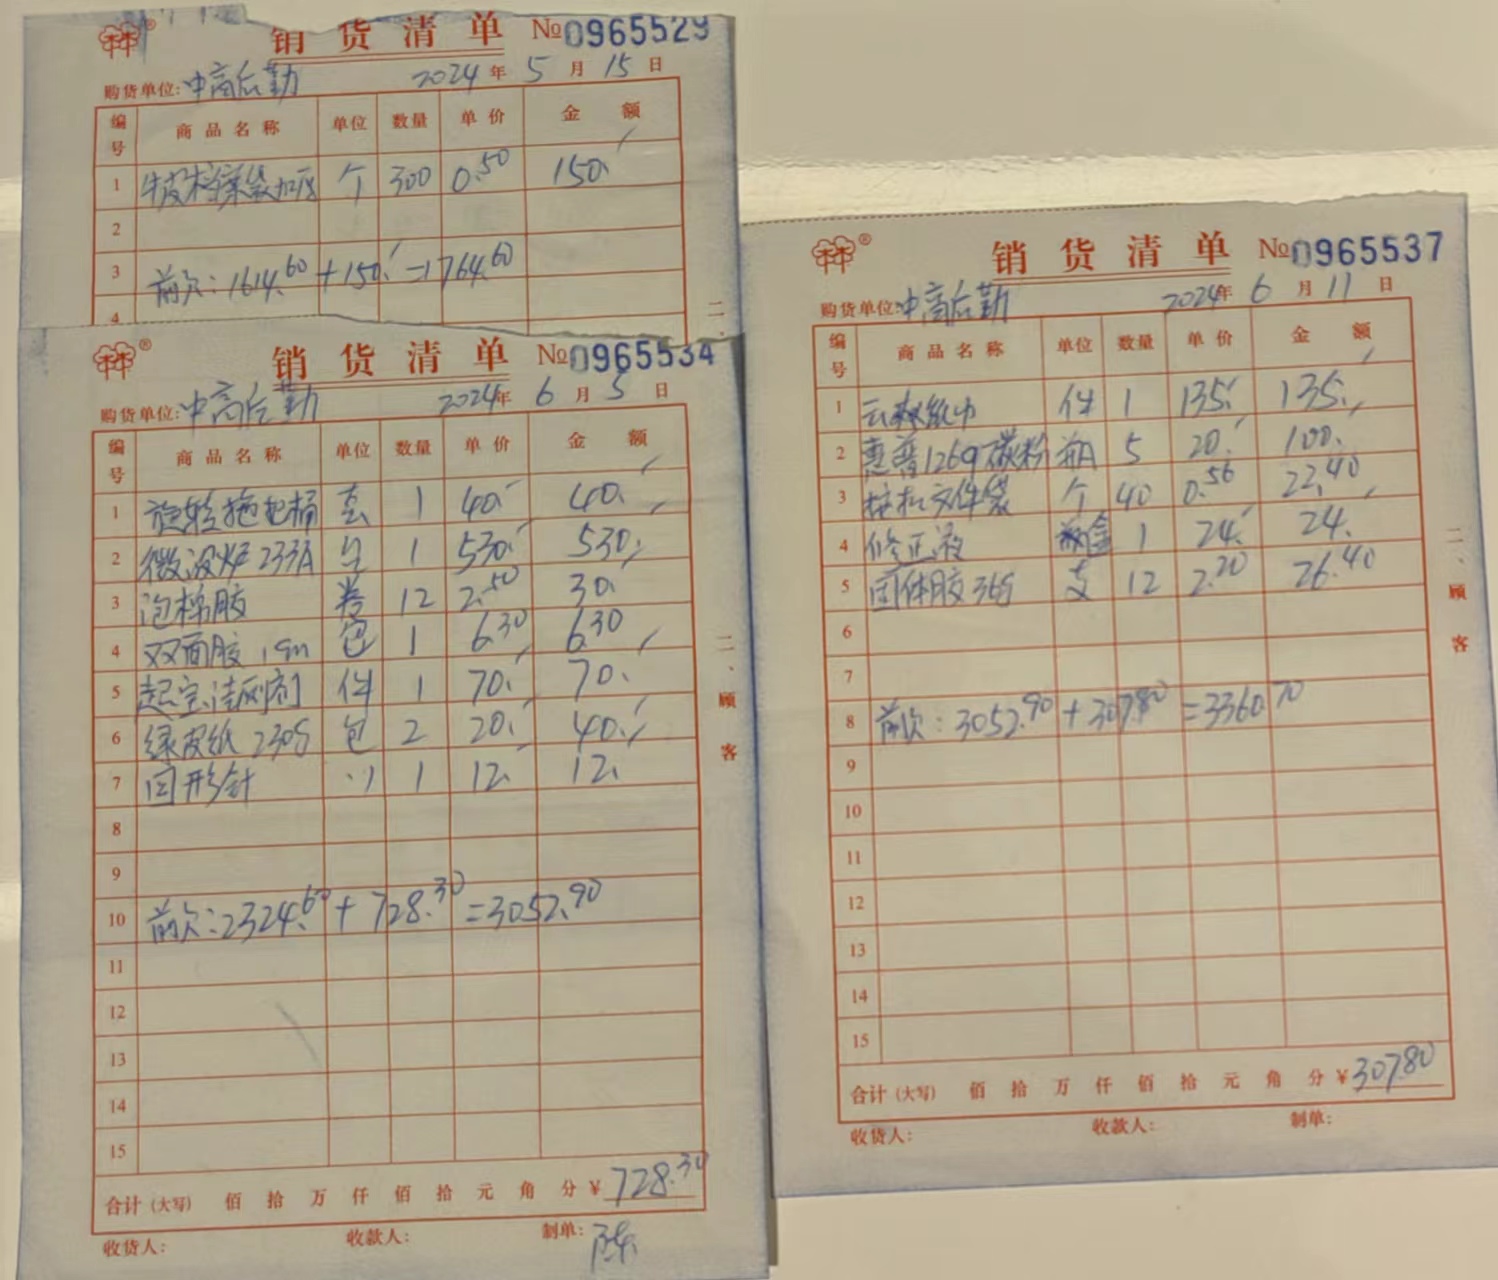 销货清单 №0965529
购货单位:中高后勤 2024年5月15日
编号 商品名称 单位 数量 单价 金额
1 牛皮档案袋加厚 个 300 0.50 150.
2
3 前欠:1614.60+150.=1764.60
4
二、
销货清单 №0965534
购货单位:中高后勤 2024年6月5日
编号 商品名称 单位 数量 单价 金额
1 旋转拖把桶 套 1 40. 40.
2 微波炉233A 台 1 530. 530.
3 泡棉胶 卷 12 2.50 30.
4 双面胶 1cm 包 1 6.30 6.30
5 超宝洁厕剂 件 1 70. 70.
6 绿皮纸230g 包 2 20. 40.
7 回形针 1 12. 12.
8
9
10 前欠:2324.60+728.30=3052.90
11
12
13
14
15
合计(大写) 佰 拾 万 仟 佰 拾 元 角 分 ¥728.30
收货人: 收款人: 制单:陈
二、顾客
销货清单 №0965537
购货单位:中高后勤 2024年6月11日
编号 商品名称 单位 数量 单价 金额
1 纸巾 件 1 135. 135.
2 惠普1269碳粉 瓶 5 20. 100.
3 按扣文件袋 个 40 0.56 22.40
4 修正液 盒 1 24. 24.
5 固体胶36g 支 12 2.20 26.40
6
7
8 前欠:3052.90+307.80=3360.70
9
10
11
12
13
14
15
合计(大写) 佰 拾 万 仟 佰 拾 元 角 分 ¥307.80
收货人: 收款人: 制单:
二、顾客